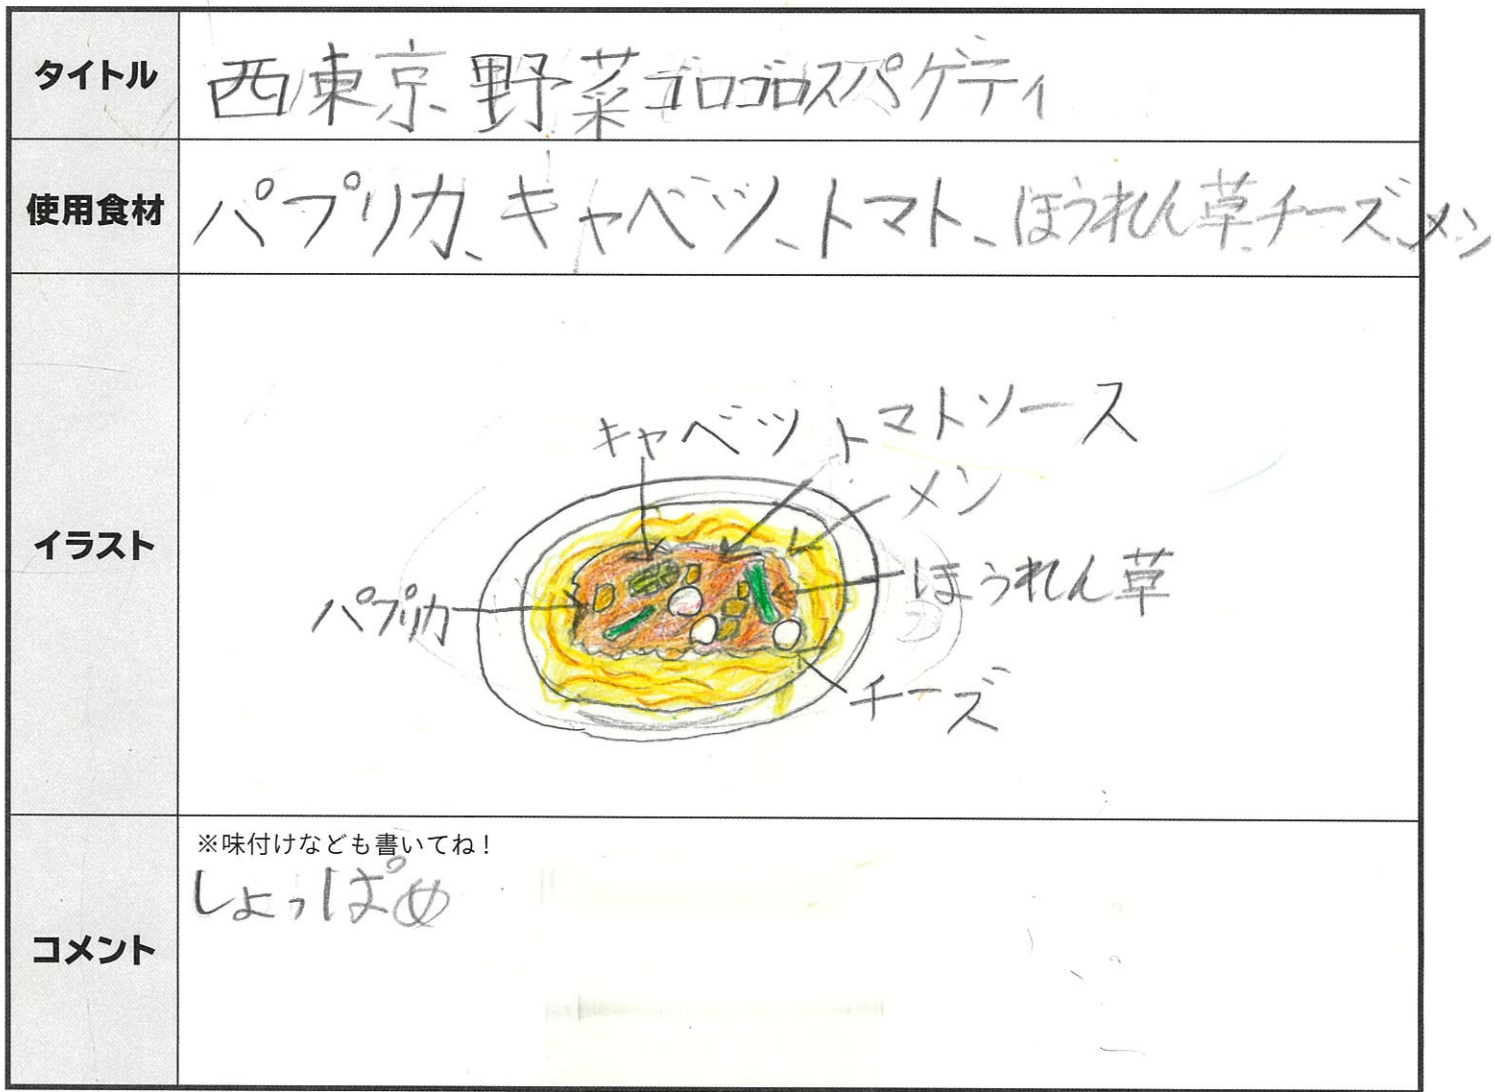 タイトル
西東京野菜ゴロゴロスパゲティ
使用食材
パプリカ、キャベツ、トマト、ほうれん草、チーズ、メン
イラスト
キャベツ
トマトソース
メン
ほうれん草
パプリカ
チーズ
コメント
※味付けなども書いてね!
しょっぱめ